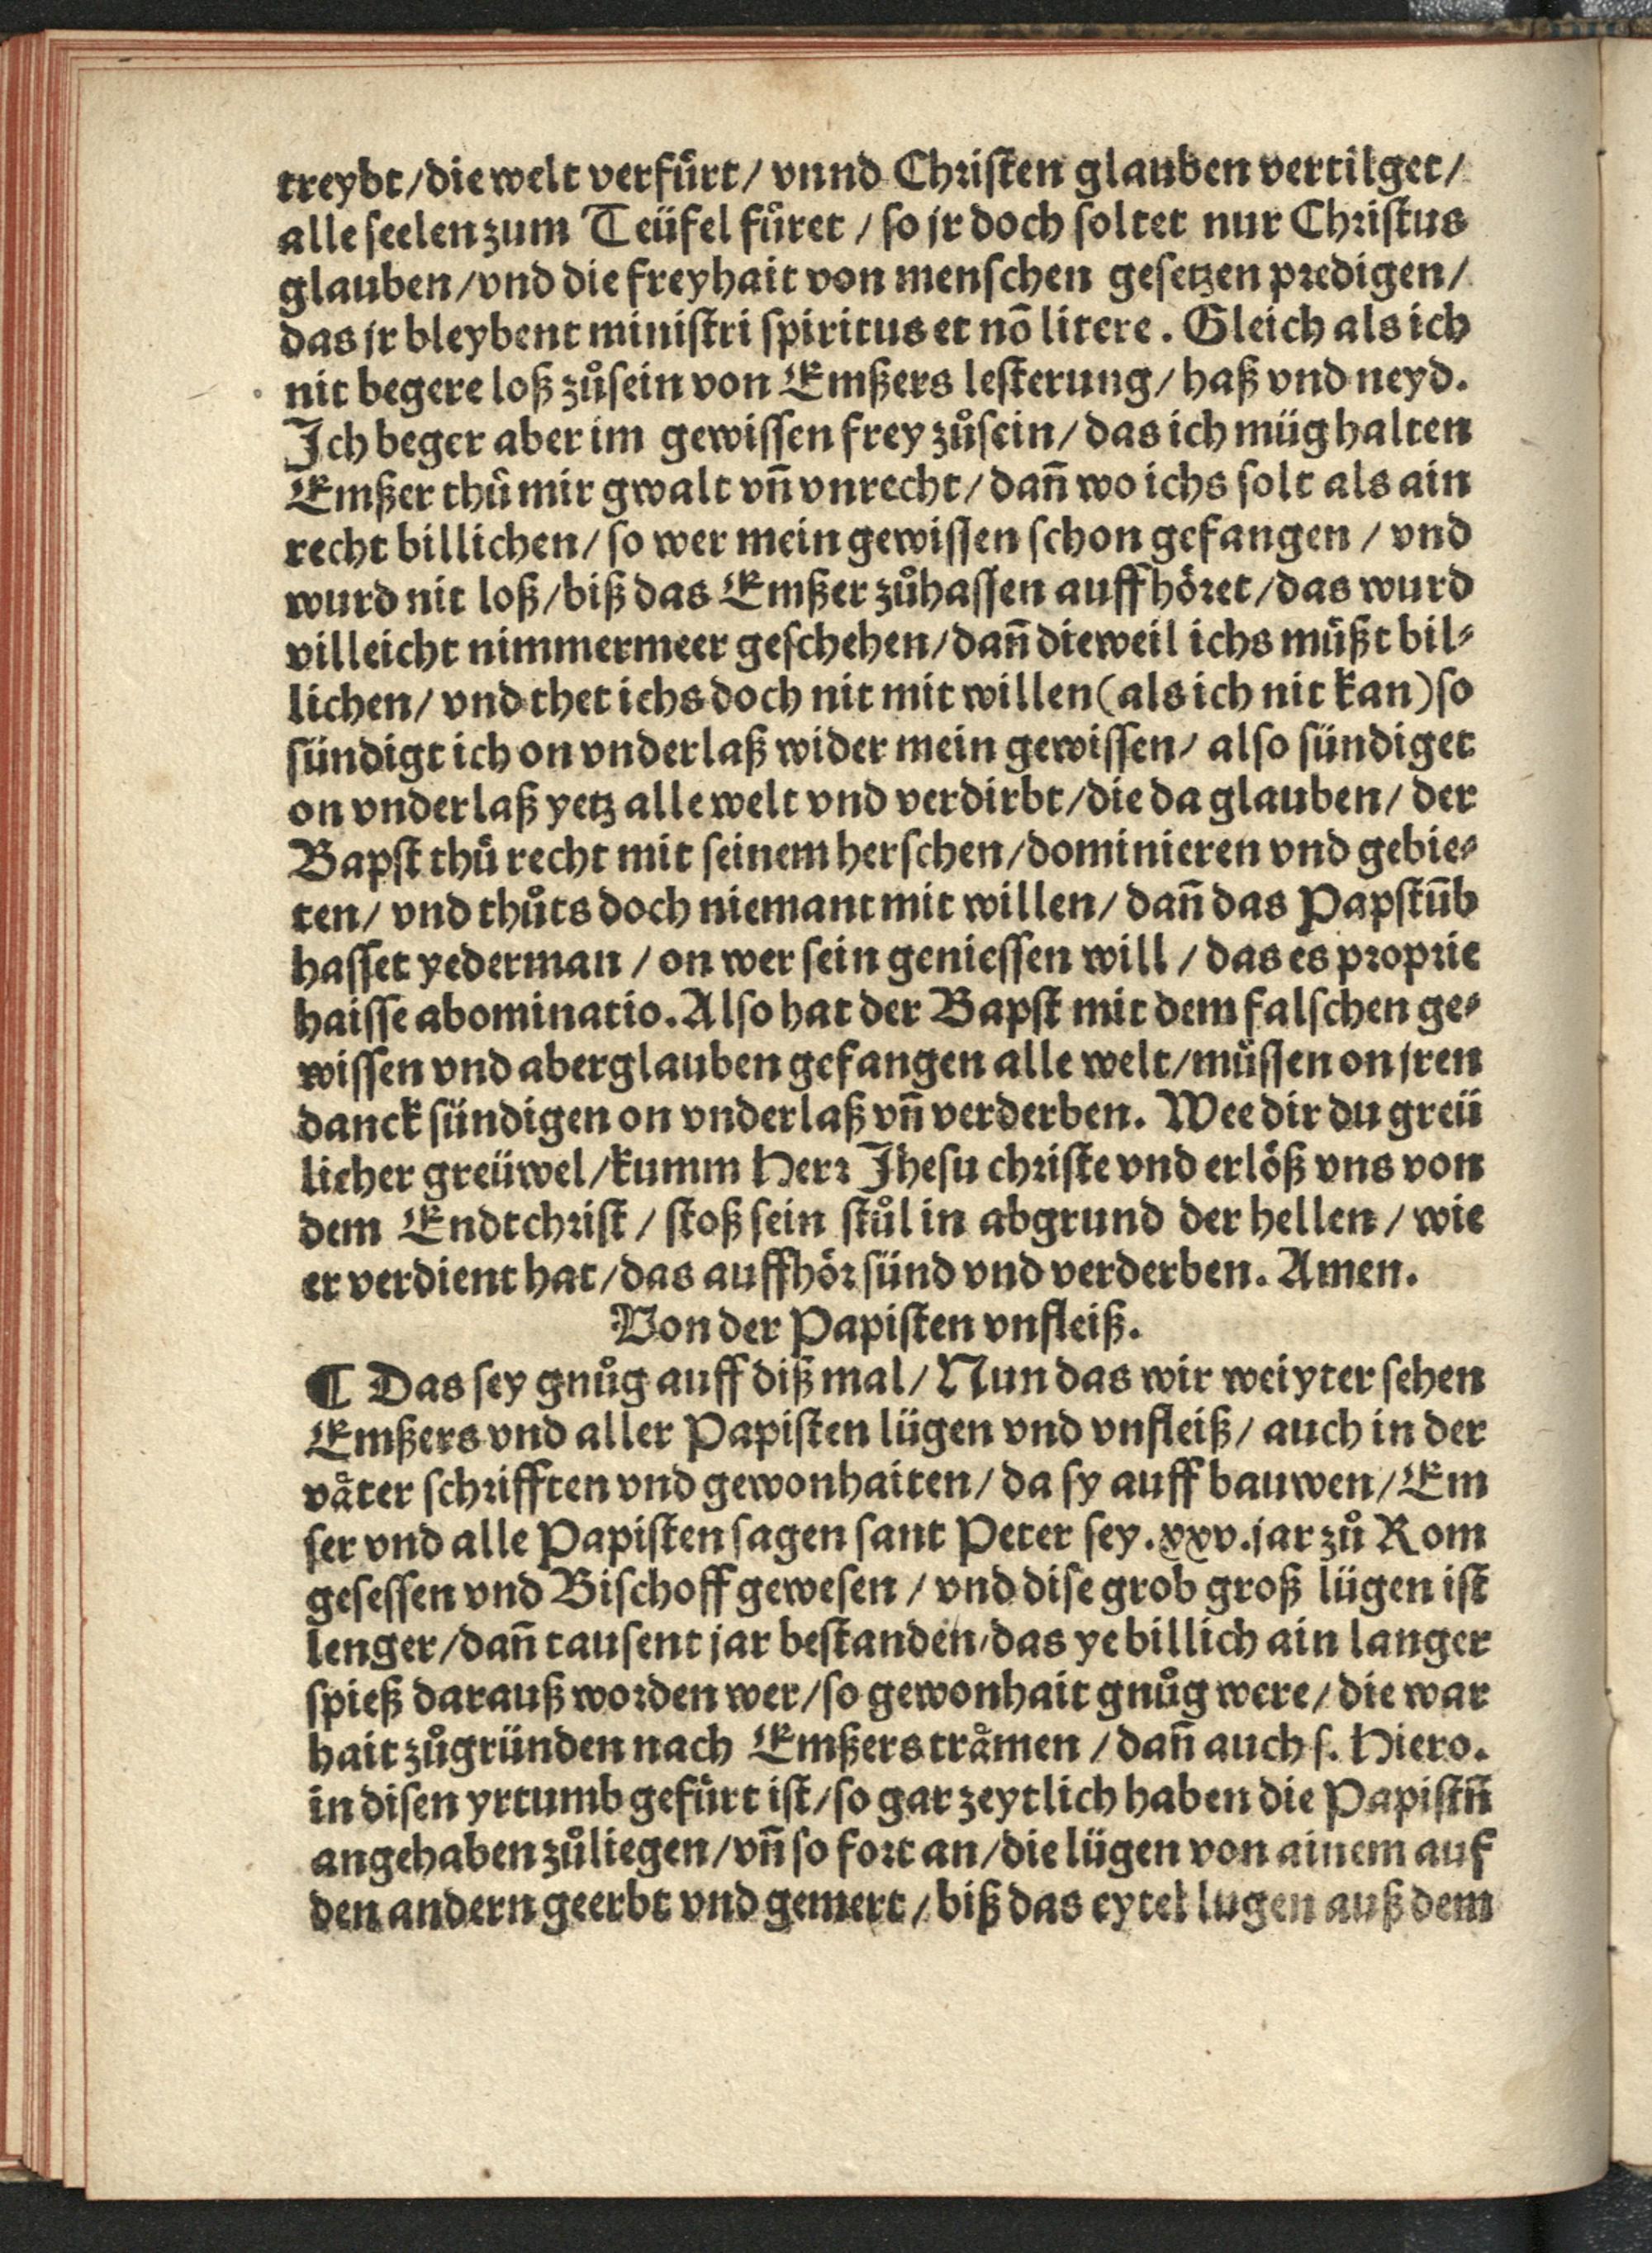 treybt/die welt verfuͤrt/ vnnd Chꝛiſten glauben vertilget/
alle ſeelen zum Teüfel fuͤret / ſo jr doch ſoltet nur Chꝛiſtus
glauben/vnd die freyhait von menſchen geſetzen pꝛedigen/
das jr bleybent miniſtri ſpiritus et nō litere. Gleich als ich
nit begere loß zůſein von Emßers leſterung/ haß vnd neyd.
Ich beger aber im gewiſſen frey zůſein/ das ich müg halten
Emßer thuͤ mir gwalt vn̄ vnrecht/ dan̄ wo ichs ſolt als ain
recht billichen/ ſo wer mein gewiſſen ſchon gefangen / vnd
wurd nit loß/biß das Emßer zůhaſſen auffhoͤꝛet/das wurd
villeicht nimmermeer geſchehen/dan̄ dieweil ichs muͤßt bil⸗
lichen/ vnd thet ichs doch nit mit willen(als ich nit kan)ſo
ſündigt ich on vnderlaß wider mein gewiſſen/ alſo ſündiget
on vnderlaß yetz alle welt vnd verdirbt/die da glauben/ der
Bapſt thuͤ recht mit ſeinem herſchen/dominieren vnd gebie⸗
ten/ vnd thůts doch niemant mit willen/ dan̄ das Papſtūb
haſſet yederman / on wer ſein genieſſen will / das es pꝛopꝛie
haiſſe abominatio. Alſo hat der Bapſt mit dem falſchen ge⸗
wiſſen vnd aberglauben gefangen alle welt/muͤſſen on jren
danck ſündigen on vnderlaß vn̄ verderben. Wee dir du greü
licher greüwel/kumm Herꝛ Jheſu chꝛiſte vnd erloͤß vns von
dem Endtchꝛiſt / ſtoß ſein ſtůl in abgrund der hellen / wie
er verdient hat/das auffhoͤꝛ ſünd vnd verderben. Amen.
Von der Papiſten vnfleiß.
¶ Das ſey gnůg auff diß mal/ Nun das wir weiyter ſehen
Emßers vnd aller Papiſten lügen vnd vnfleiß/ auch in der
vaͤter ſchꝛifften vnd gewonhaiten/ da ſy auff bauwen/ Em
ſer vnd alle Papiſten ſagen ſant Peter ſey.xxv.jar zů Rom
geſeſſen vnd Biſchoff geweſen / vnd diſe grob groß lügen iſt
lenger/dan̄ tauſent jar beſtanden/das ye billich ain langer
ſpieß darauß woꝛden wer/ſo gewonhait gnůg were/ die war
hait zůgründen nach Emßers traͤmen / dan̄ auch ſ. Hiero.
in diſen yrtumb gefuͤrt iſt/ſo gar zeytlich haben die Papiſtn̄
angehaben zůliegen/vn̄ ſo foꝛt an/die lügen von ainem auf
den andern geerbt vnd gemert / biß das eytel lugen auß dem